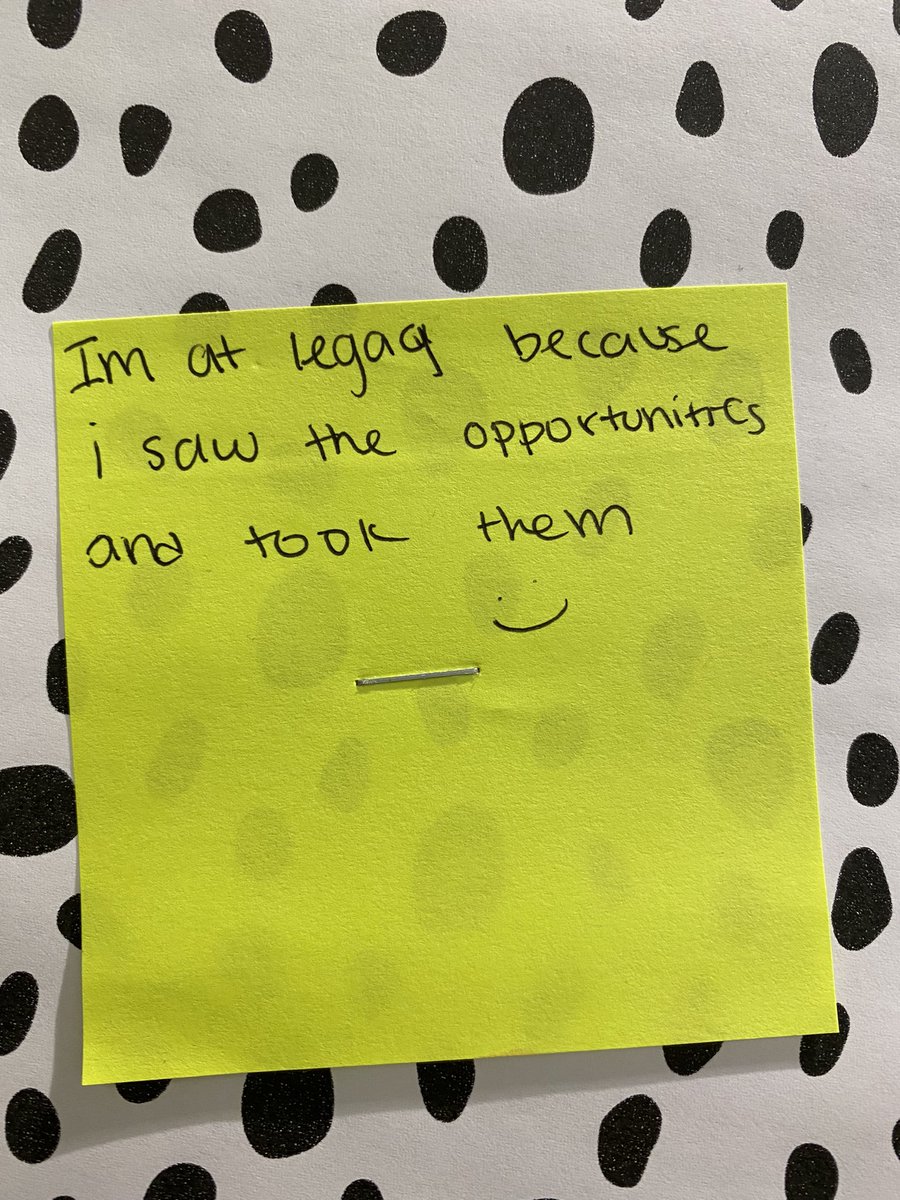 Im at legacy because
i saw the opportunities
and took them